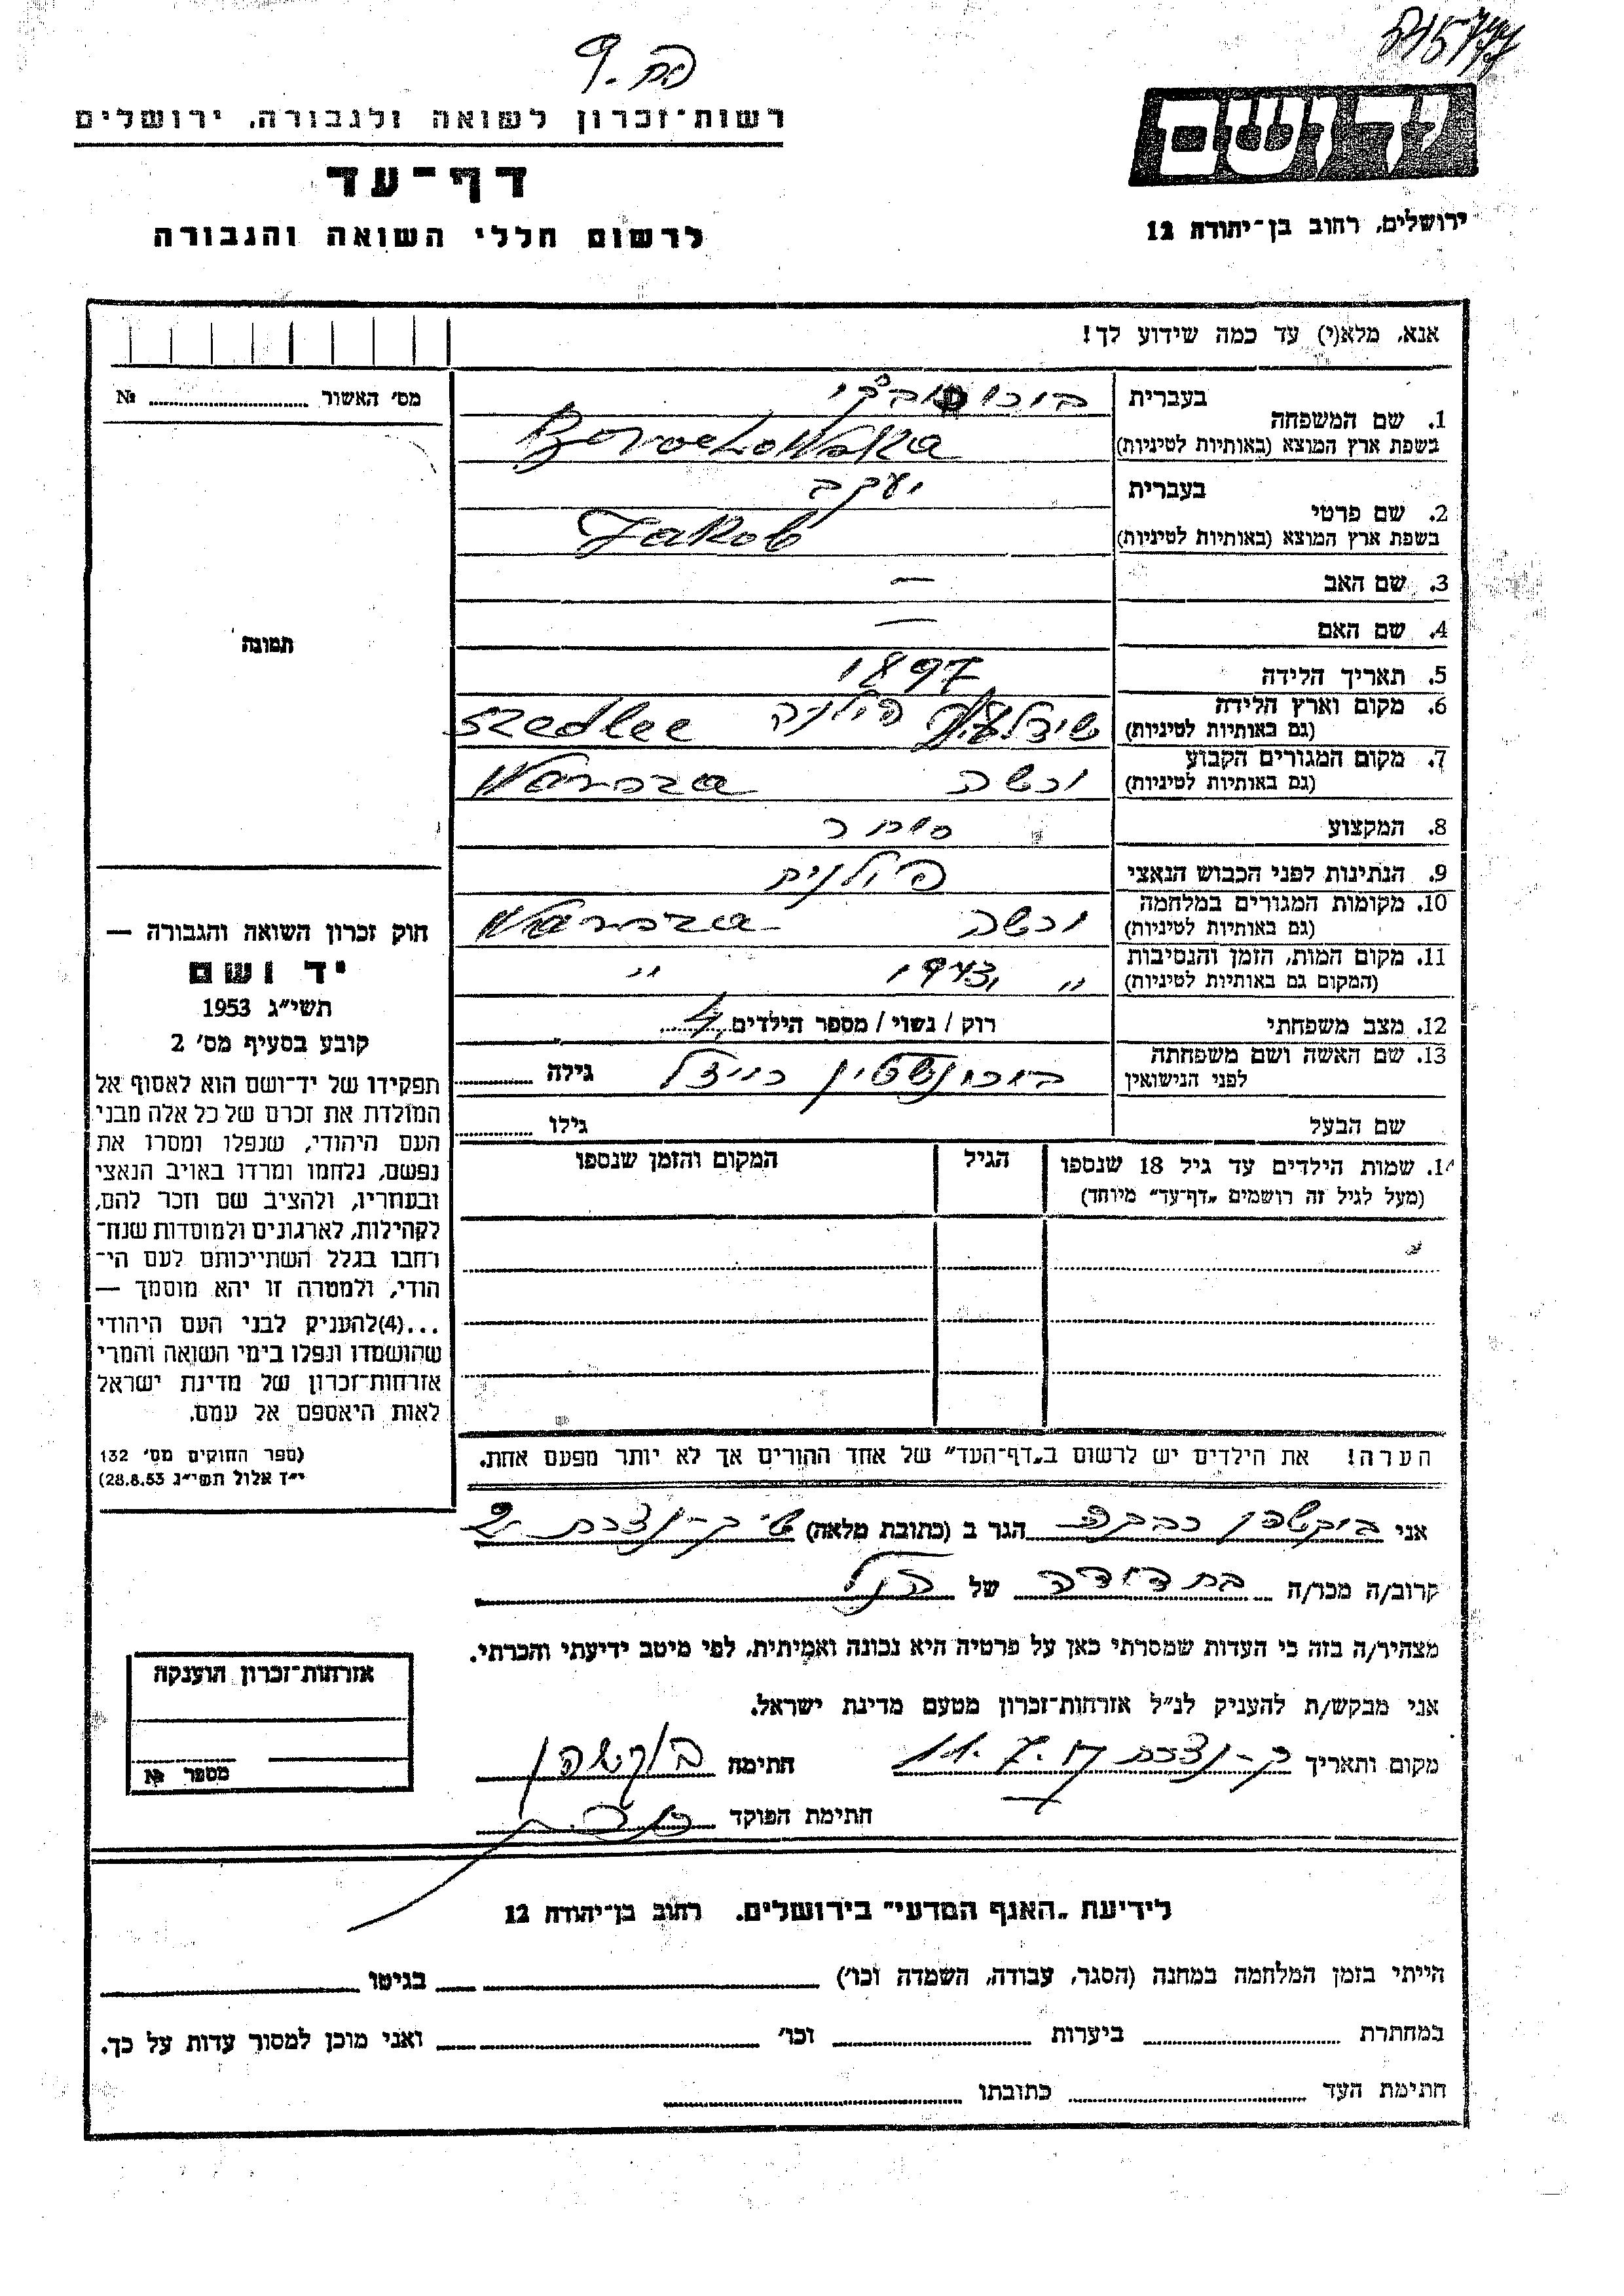 רשות־זכרון לשואה ולגבורה, ירושלים
דף־עד
לרשום חללי השואה והגבורה
יד ושם
ירושלים, רחוב בן־יהודה 12
אנא, מלא(י) עד כמה שידוע לך!
מס׳ האשור № 
תמונה
חוק זכרון השואה והגבורה —
יד ושם
תשי״ג 1953
קובע בסעיף מס׳ 2
תפקידו של יד־ושם הוא לאסוף אל
המולדת את זכרם של כל אלה מבני
העם היהודי, שנפלו ומסרו את
נפשם, נלחמו ומרדו באויב הנאצי
ובעוזריו, ולהציב שם וזכר להם,
לקהילות, לארגונים ולמוסדות שנח־
רחבו בגלל השתייכותם לעם הי־
הודי, ולמטרה זו יהא מוסמך —
...(4)להעניק לבני העם היהודי
שהושמדו ונפלו בימי השואה והמרי
אזרחות־זכרון של מדינת ישראל
לאות היאספם אל עמם.
(ספר החוקים מס׳ 132
י״ד אלול תשי״ג 28.8.53)
1. שם המשפחה
בעברית
בשפת ארץ המוצא (באותיות לטיניות) Borochowska
2. שם פרטי
בעברית יעקב
בשפת ארץ המוצא (באותיות לטיניות) Jakob
3. שם האב —
4. שם האם —
5. תאריך הלידה 1897
6. מקום וארץ הלידה
(גם באותיות לטיניות) פולניה Szedlee
7. מקום המגורים הקבוע
(גם באותיות לטיניות) ורשה Warsza
8. המקצוע סוחר
9. הנתינות לפני הכבוש הנאצי פולנית
10. מקומות המגורים במלחמה
(גם באותיות לטיניות) ורשה Warsza
11. מקום המות, הזמן והנסיבות
(המקום גם באותיות לטיניות) ״ 1943 ״
12. מצב משפחתי רוק / נשוי / מספר הילדים 4
13. שם האשה ושם משפחתה
לפני הנישואין ריידל גילה
שם הבעל גילו
14. שמות הילדים עד גיל 18 שנספו הגיל המקום והזמן שנספו
(מעל לגיל זה רושמים „דף־עד״ מיוחד)
הערה! את הילדים יש לרשום ב„דף־העד״ של אחד ההורים אך לא יותר מפעם אחת.
אני רבקה הגר ב (כתובת מלאה) ק-נצרת
קרוב/ה מכר/ה בת דודה של הנ״ל
מצהיר/ה בזה כי העדות שמסרתי כאן על פרטיה היא נכונה ואמיתית, לפי מיטב ידיעתי והכרתי.
אני מבקש/ת להעניק לנ״ל אזרחות־זכרון מטעם מדינת ישראל.
מקום ותאריך ק-נצרת חתימה
חתימת הפוקד
אזרחות־זכרון הוענקה
מספר №
לידיעת „האגף המדעי״ בירושלים. רחוב בן־יהודה 12
הייתי בזמן המלחמה במחנה (הסגר, עבודה, השמדה וכו׳) בגיטו
במחתרת ביערות וכו׳ ואני מוכן למסור עדות על כך.
חתימת העד כתובתו